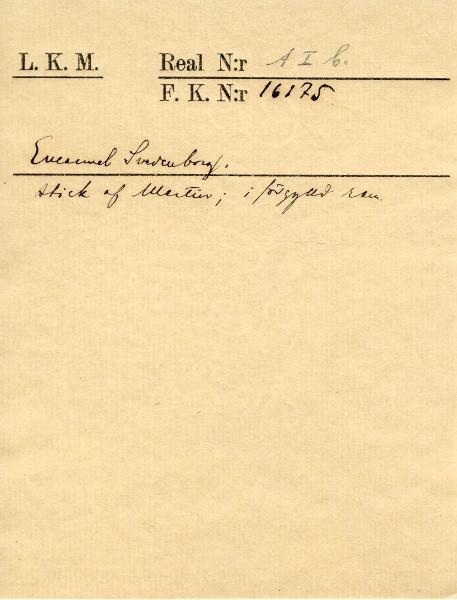 L. K. M. Real N:r A I b.
F. K. N:r 16175.
Emanuel Svedenborg.
stick af Martin; i förgylld ram